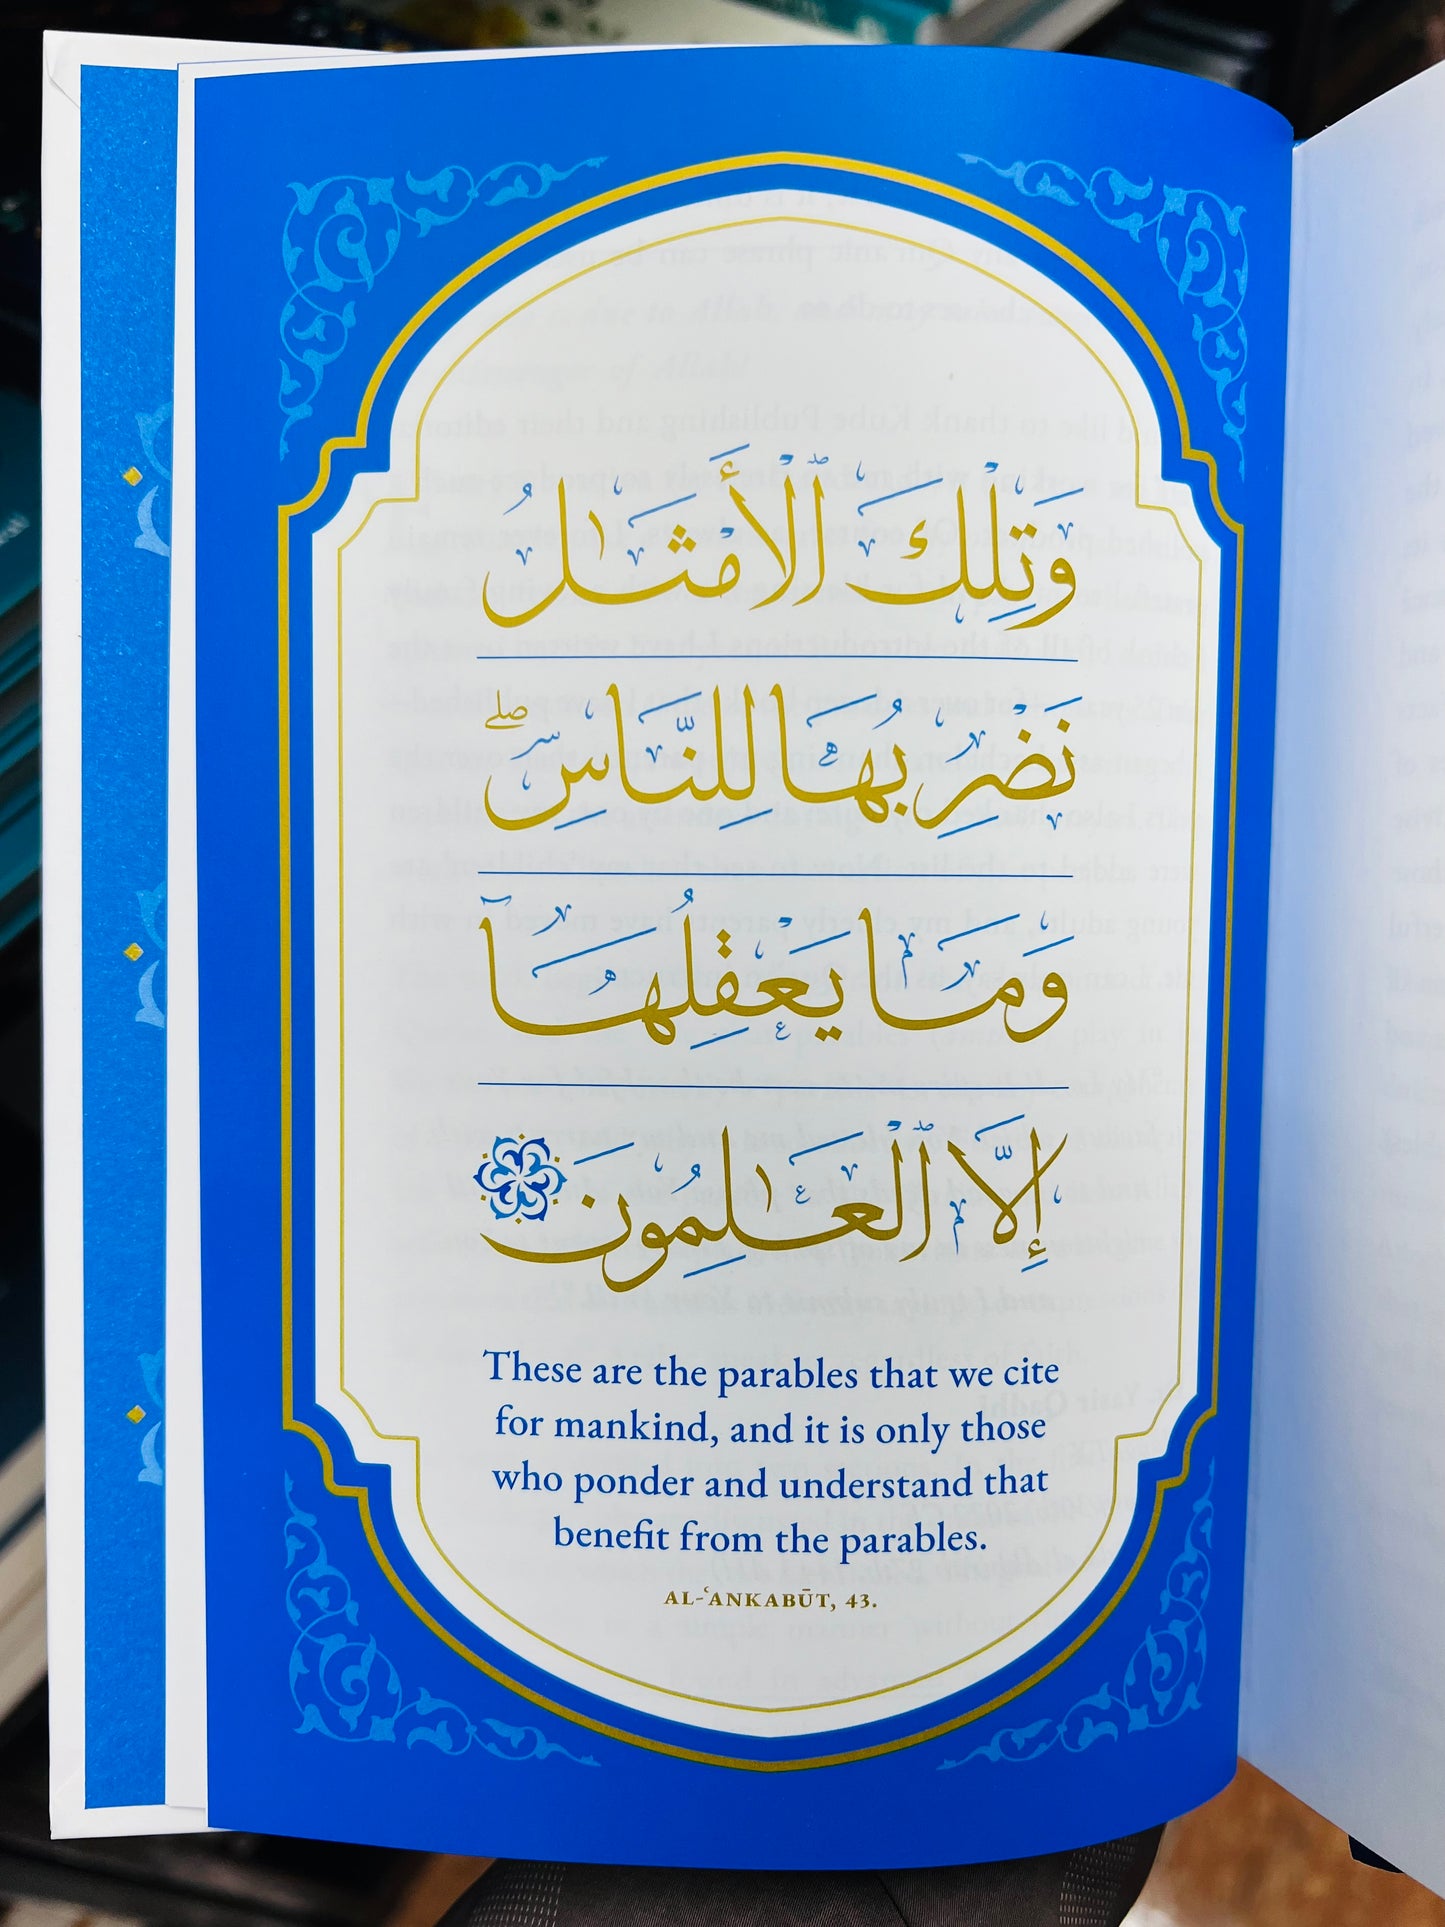 وَتِلْكَ ٱلْأَمْثَـٰلُ
نَضْرِبُهَا لِلنَّاسِ ۖ
وَمَا يَعْقِلُهَآ
إِلَّا ٱلْعَـٰلِمُونَ
These are the parables that we cite
for mankind, and it is only those
who ponder and understand that
benefit from the parables.
AL-ʿANKABŪT, 43.